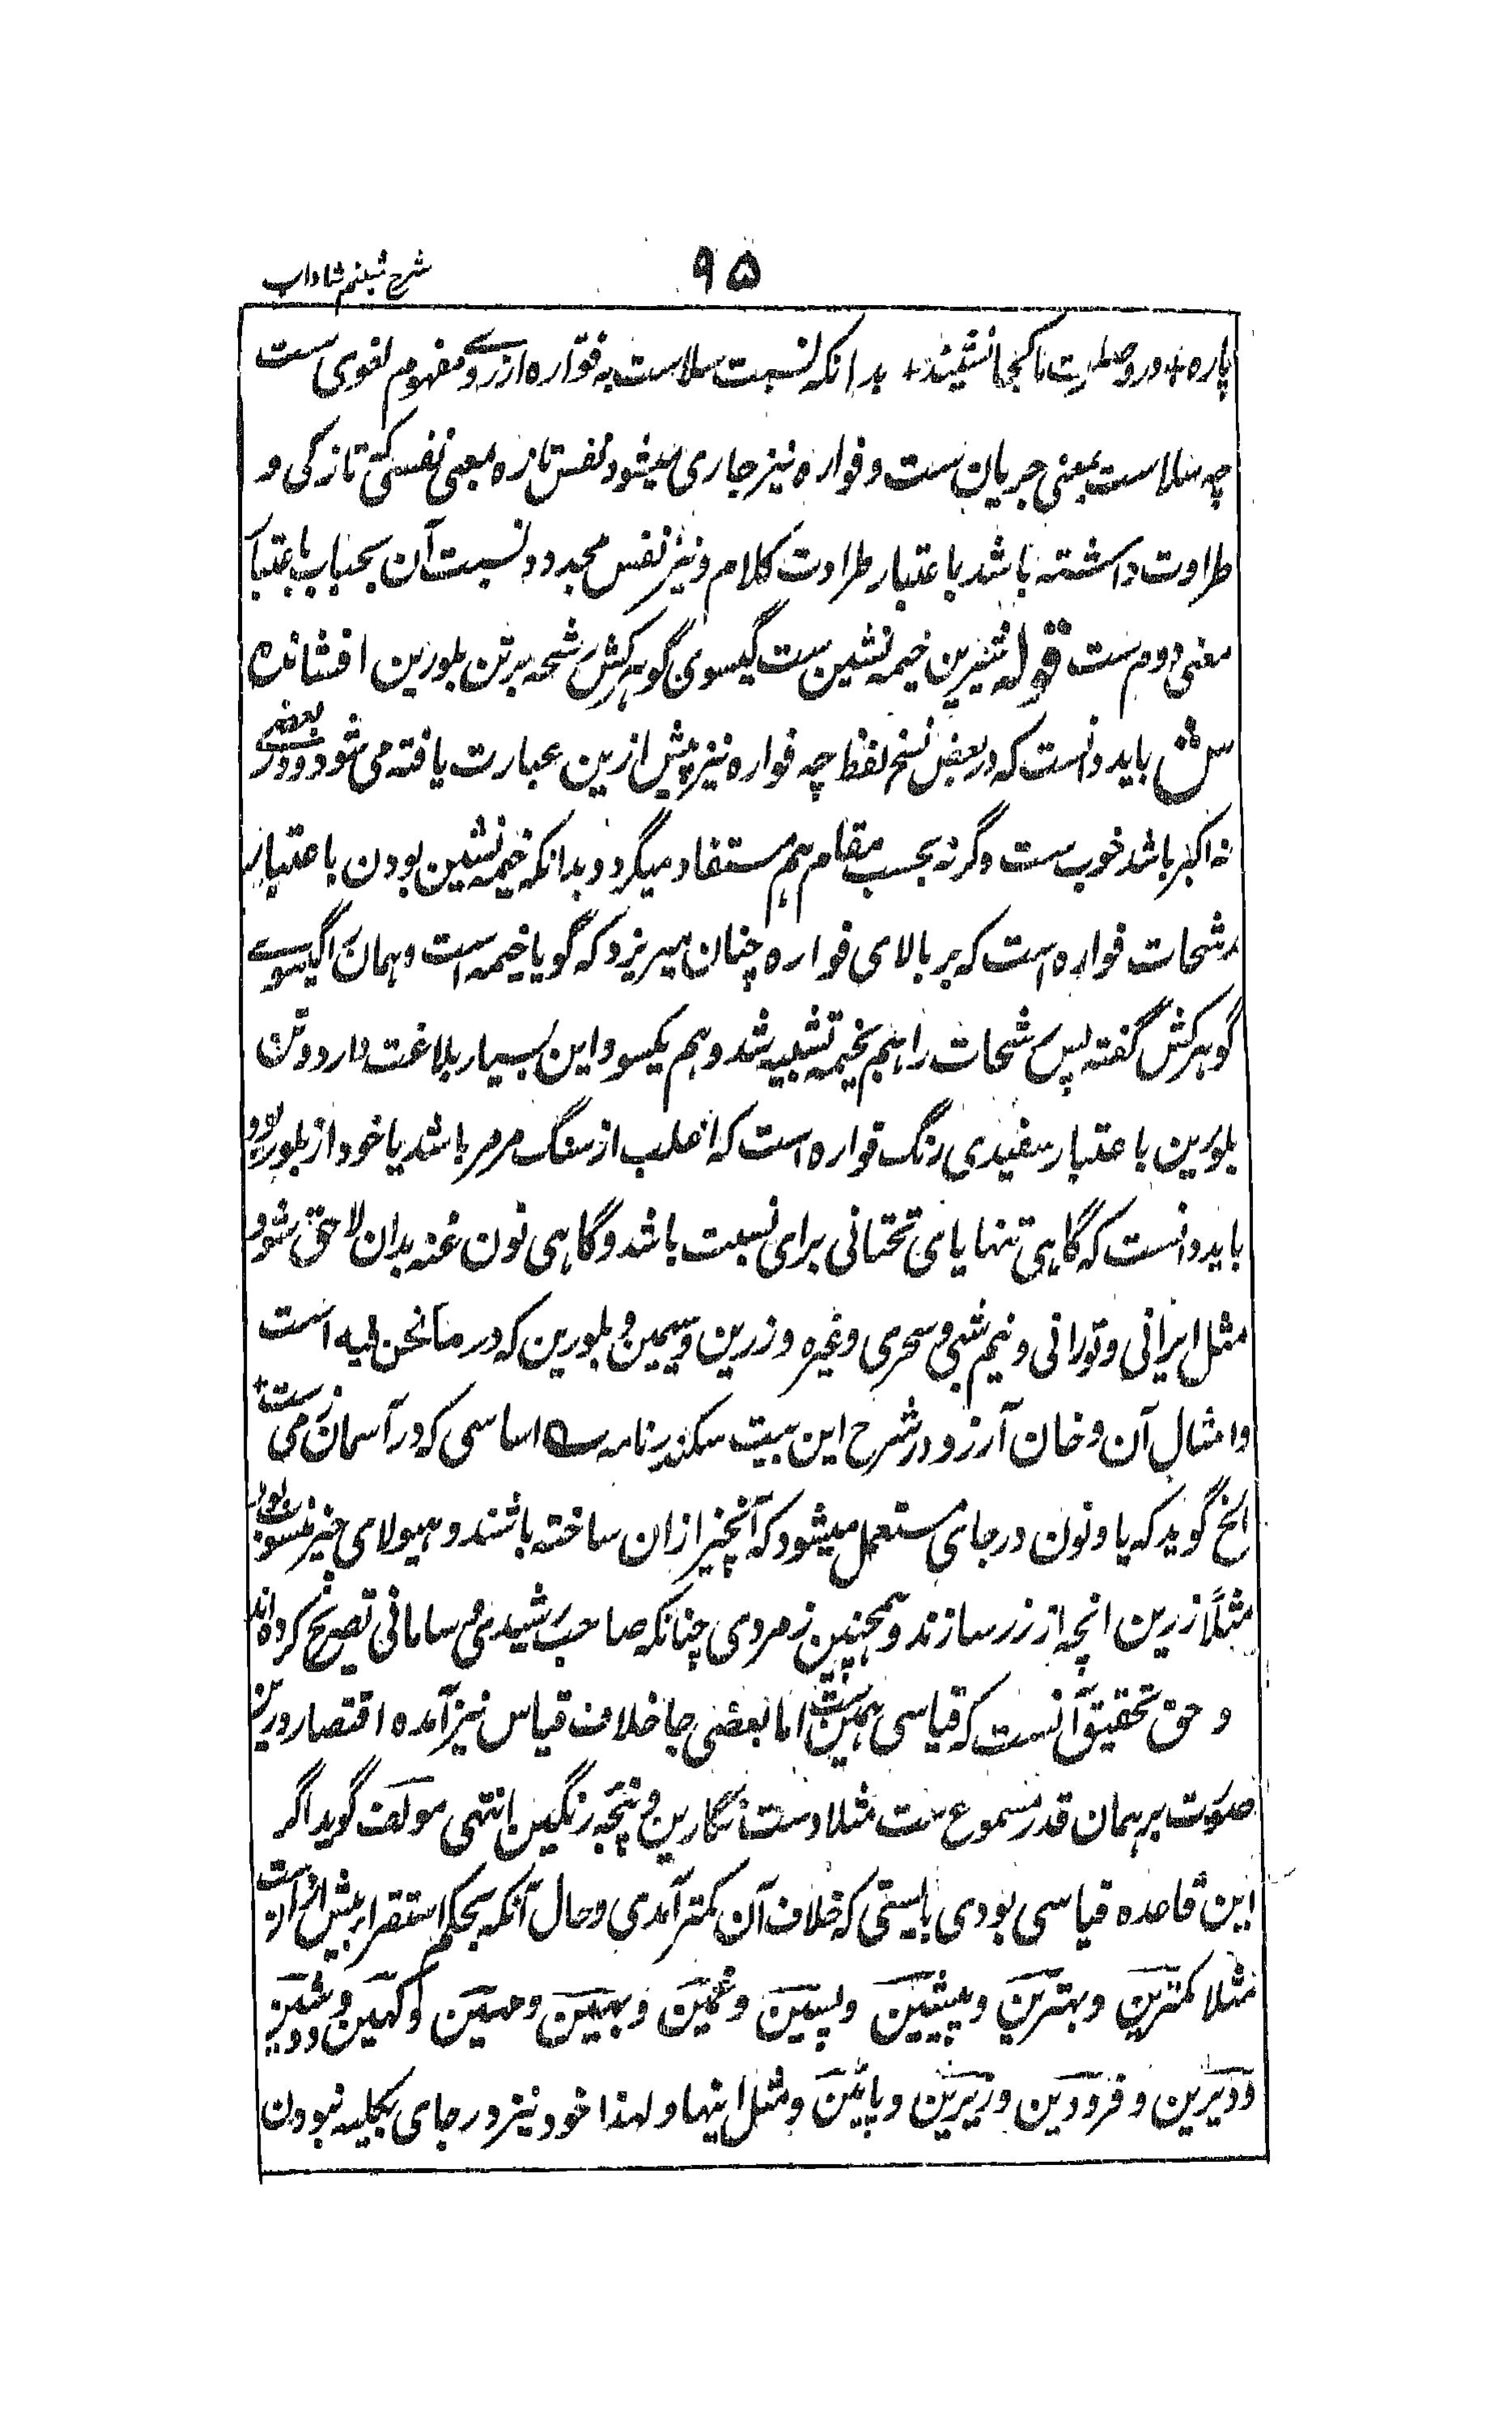 ۹۵
شرح شبنم شاداب
پاره + در و صلوت ناکجا نشیند + بدانکه نسبت سلاست به فواره از روے مفهوم لغوی ست
چه سلاست بمعنی جریان ست و فواره نیز جاری میشود نفس تازه بمعنی نفسی که تازگی و
طراوت داشته باشد باعتبار طراوت کلام و نیز نفس مجدد و نسبت آن بحباب باعتبا
معنی دوم ست قوله شیرین خیمه نشین ست گیسوی گوهرکش رشحه بر تن بلورین افشانده
ش باید دانست که در بعض نسخ لفظ چه فواره نیز پیش ازین عبارت یافته می شود و در بعضے
نه اکبر باشد خوب ست وگرنه بحسب مقام هم مستفاد میگردد و بدانکه خیمه نشین بودن باعتبار
رشحات فواره است که بر بالای فواره چنان میریزد که گویا خیمه است و همان را گیسوے
گوهرکش گفته پس رشحات را هم بخیمه تشبیه شد و هم بگیسو و این بسیار بلاغت دارد و تن
بلورین باعتبار سفیدی رنگ فواره است که اغلب از سنگ مرمر باشد یا خود از بلور بود و
باید دانست که گاهی تنها یای تحتانی برای نسبت باشد و گاهی نون غنه بدان لاحق شود
مثل ایرانی و تورانی و نیم شبی و سحری و غیره و زرین و سیمین و بلورین که در ما نحن فیه است
و امثال آن و خان آرزو در شرح این بیت سکندر نامه اساسی که در آسمان و زمی ست +
الخ گوید که یا و نون در جای مستعمل میشود که آنچیز ازان ساخته باشند و هیولای چیز منسوب بود
مثلاً زرین انچه از زر سازند و همچنین زمردی چنانکه صاحب رشیدی و سامانی تصریح کرده اند
و حق تحقیق آنست که قیاسی همین ست اما بعضی جا خلاف قیاس نیز آمده اقتصار درین
صورت بر همان قدر مسموع ست مثلا دست نگارین و پنجه رنگین انتهی مولف گوید اگر
این قاعده قیاسی بودی بایستی که خلاف آن کمتر آمدی و حال آنکه بحکم استقراء بیش از آن ست
مثلا کمترین و بهترین و پیشین و پسین و غمین و بهین و مهین و کهین و دوشین
و دیرین و فرودین و زیرین و پائین و مثل اینها و لهذا خود نیز در جای بکلیه نبودن